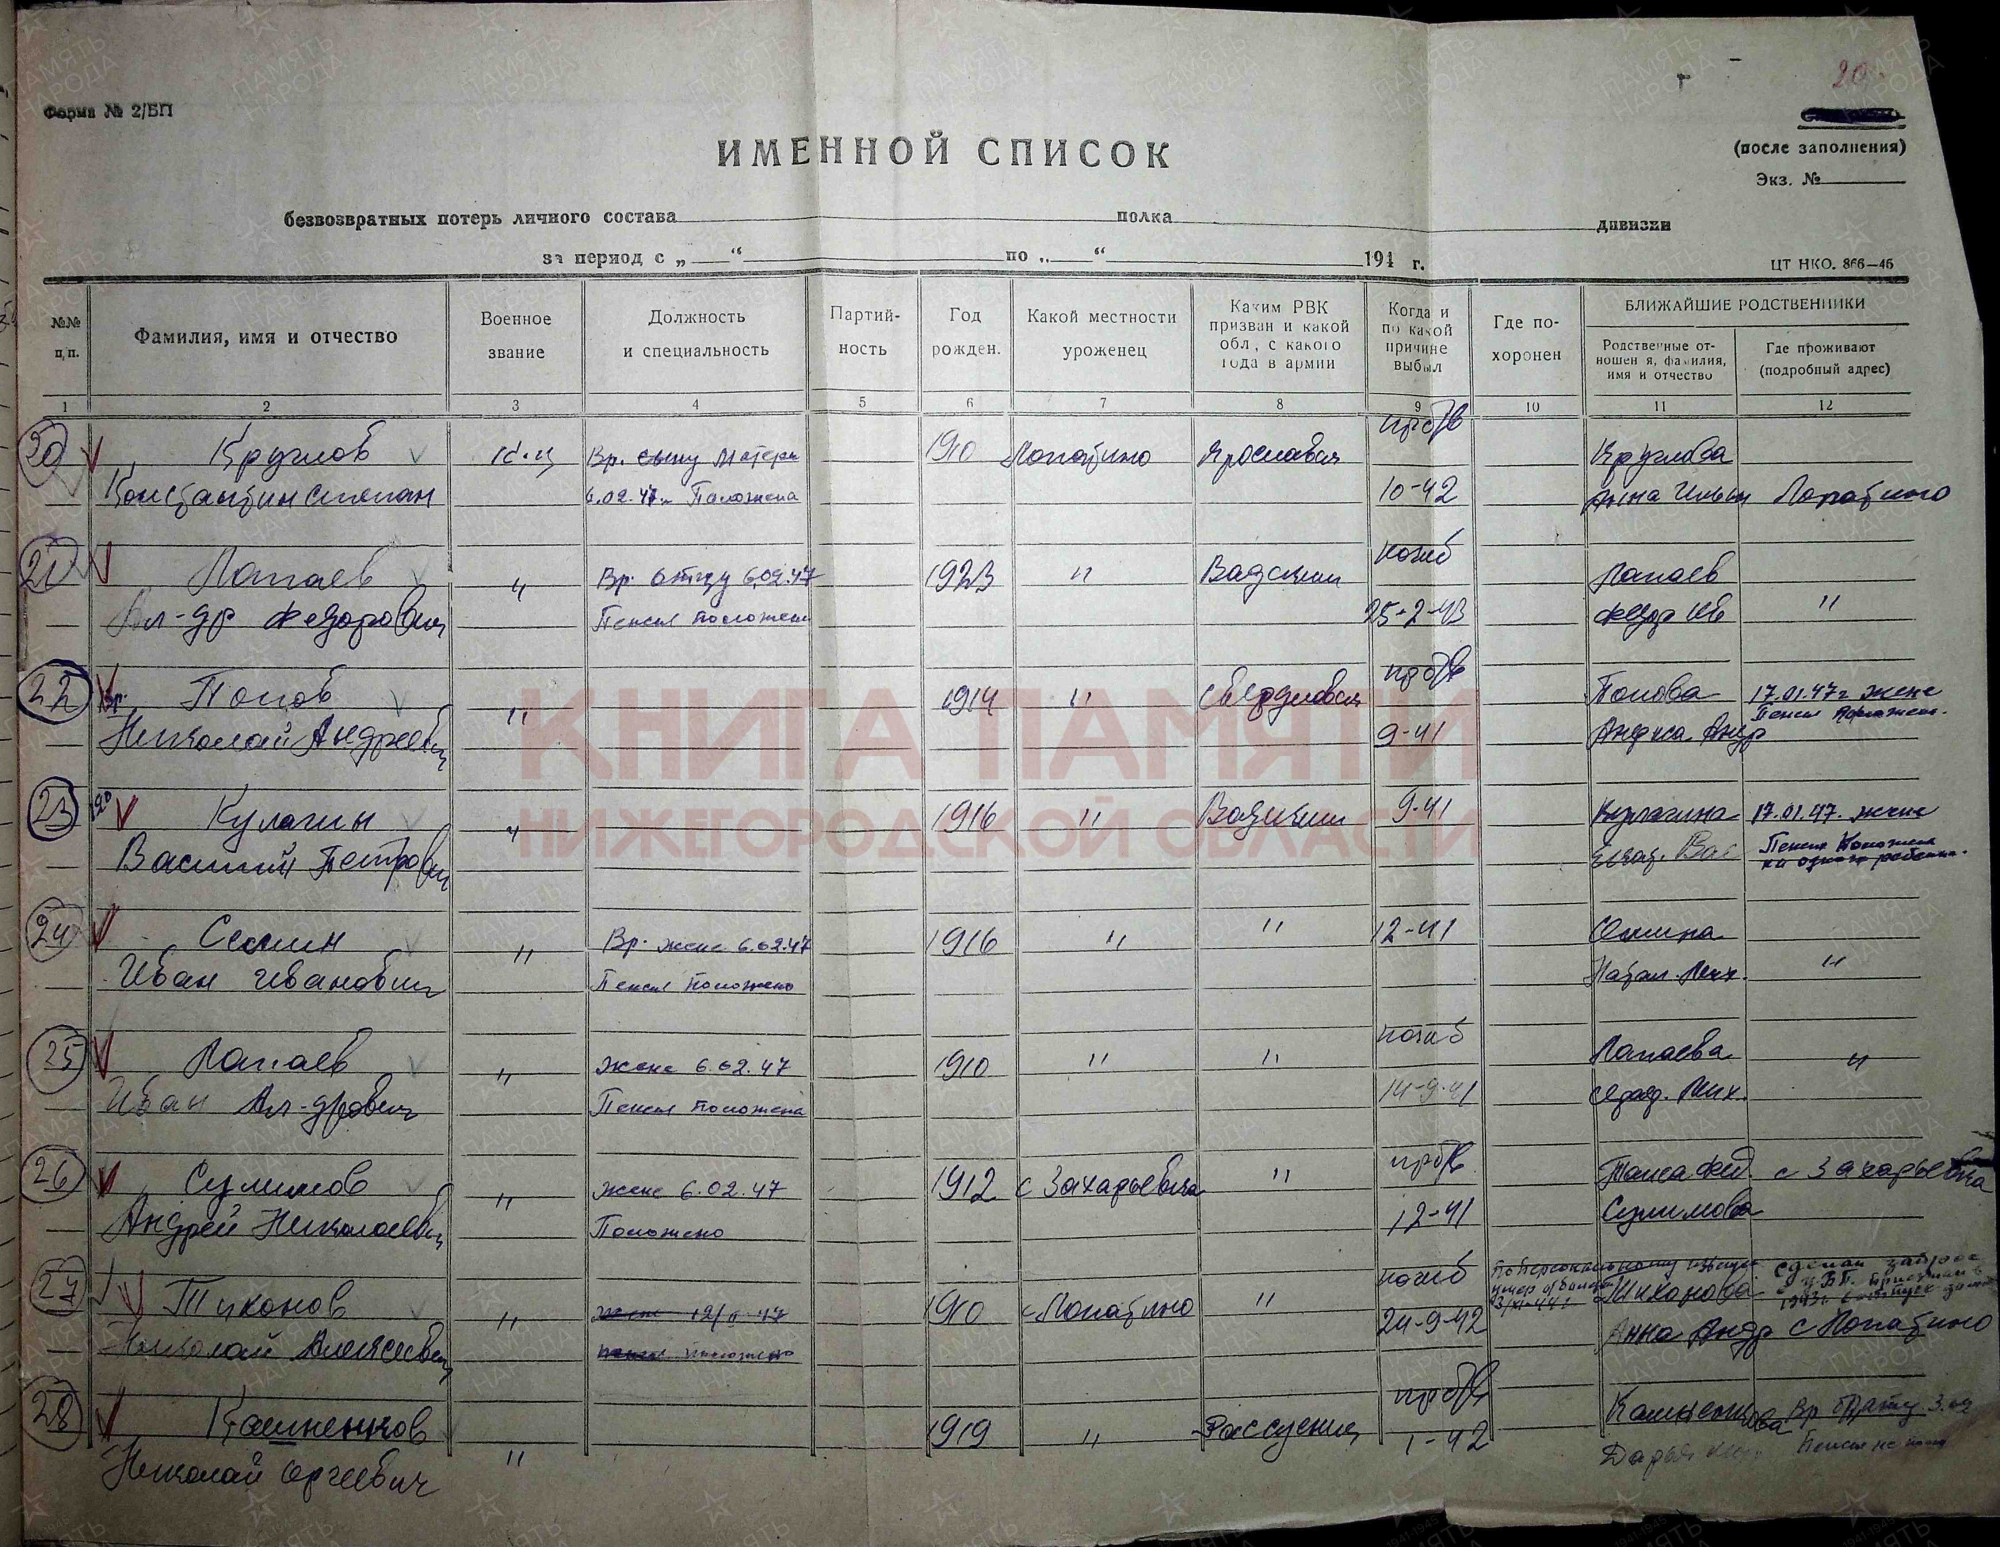 20
Форма № 2/БП
ИМЕННОЙ СПИСОК
(после заполнения)
Экз. №
безвозвратных потерь личного состава полка дивизии
за период с „ “ по „ “ 194 г.
ЦТ НКО. 866—45
№№ п.п.
Фамилия, имя и отчество
Военное звание
Должность и специальность
Партийность
Год рожден.
Какой местности уроженец
Каким РВК призван и какой обл, с какого года в армии
Когда и по какой причине выбыл
Где похоронен
БЛИЖАЙШИЕ РОДСТВЕННИКИ
Родственные отношения, фамилия, имя и отчество
Где проживают (подробный адрес)
1 2 3 4 5 6 7 8 9 10 11 12
20 Круглов к-ц Вр. сыну Матери 1910 Лопатино Ярославск проб/в Круглова
Константин Степан 6.02.47г Положена 10-42 Анна Ильин Лопатино
21 Лапаев " Вр. отцу 6.02.47 1923 " Вадским погиб Лапаев
Ал-др Федорович Пенсия положена 25-2-43 Федор Ив "
22 Вр. Попов " 1914 " Свердловск проб/в Попова 17.01.47г жене
Николай Андреевич 9-41 Андр Пенсия положен.
23 Кулагин " 1916 " Вадским 9-41 Кулагина 17.01.47. жене
Василий Петрович Вас Пенсия положена
на одного ребенка.
24 Семин " Вр. жене 6.02.47 1916 " " 12-41 Семина
Иван Иванович Пенсия положено Натал. Мих. "
25 Лапаев " жене 6.02.47 1910 " " погиб Лапаева "
Иван Ал-дрович Пенсия положена 14-9-41 Мих.
26 Сулимов " жене 6.02.47 1912 с Захарьевка " проб/в Таиса Фед. с Захарьевка
Андрей Николаевич Положено 12-41 Сулимова
27 Тихонов " жене 1910 с Лопатино " погиб По персональному Тихонова сделан запрос
Николай Алексеевич положено 24-9-42 умер Анна Андр с Лопатино
28 Кашненков " 1919 " проб/в Вр брату
Николай Сергеевич 1-42 Дарья Пенсия не
КНИГА ПАМЯТИ
НИЖЕГОРОДСКОЙ ОБЛАСТИ
ПАМЯТЬ НАРОДА